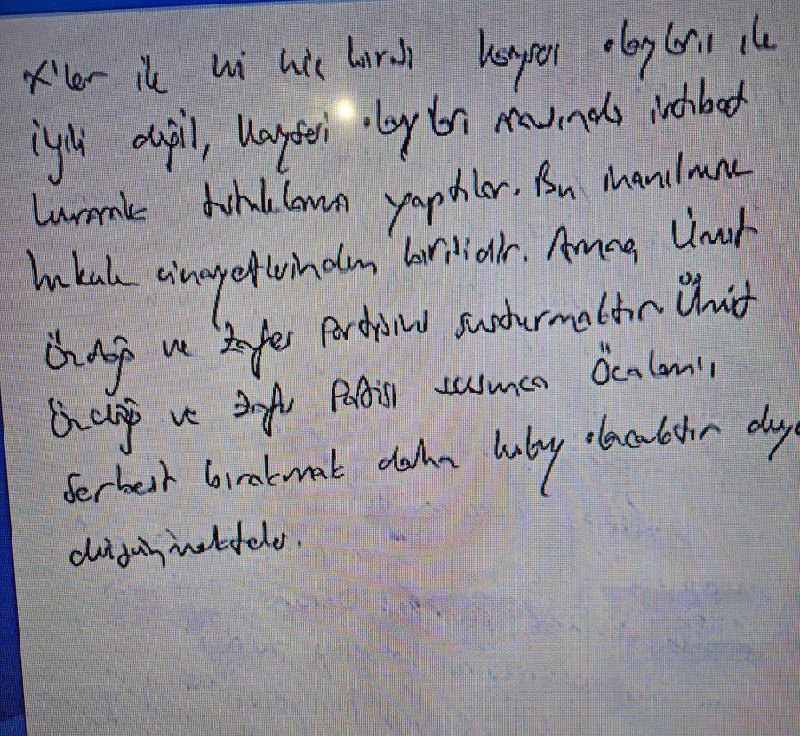 X'ler ile ki hiç birisi Kayseri olayları ile
ilgili değil, Kayseri olayları arasında irtibat
kurarak tutuklama yaptılar. Bu inanılmaz
hukuk cinayetlerinden birisidir. Amaç Ümit
Özdağ ve Zafer Partisini susturmaktır. Ümit
Özdağ ve Zafer Partisi susunca Öcalanı
serbest bırakmak daha kolay olacaktır diye
düşünmekteler.